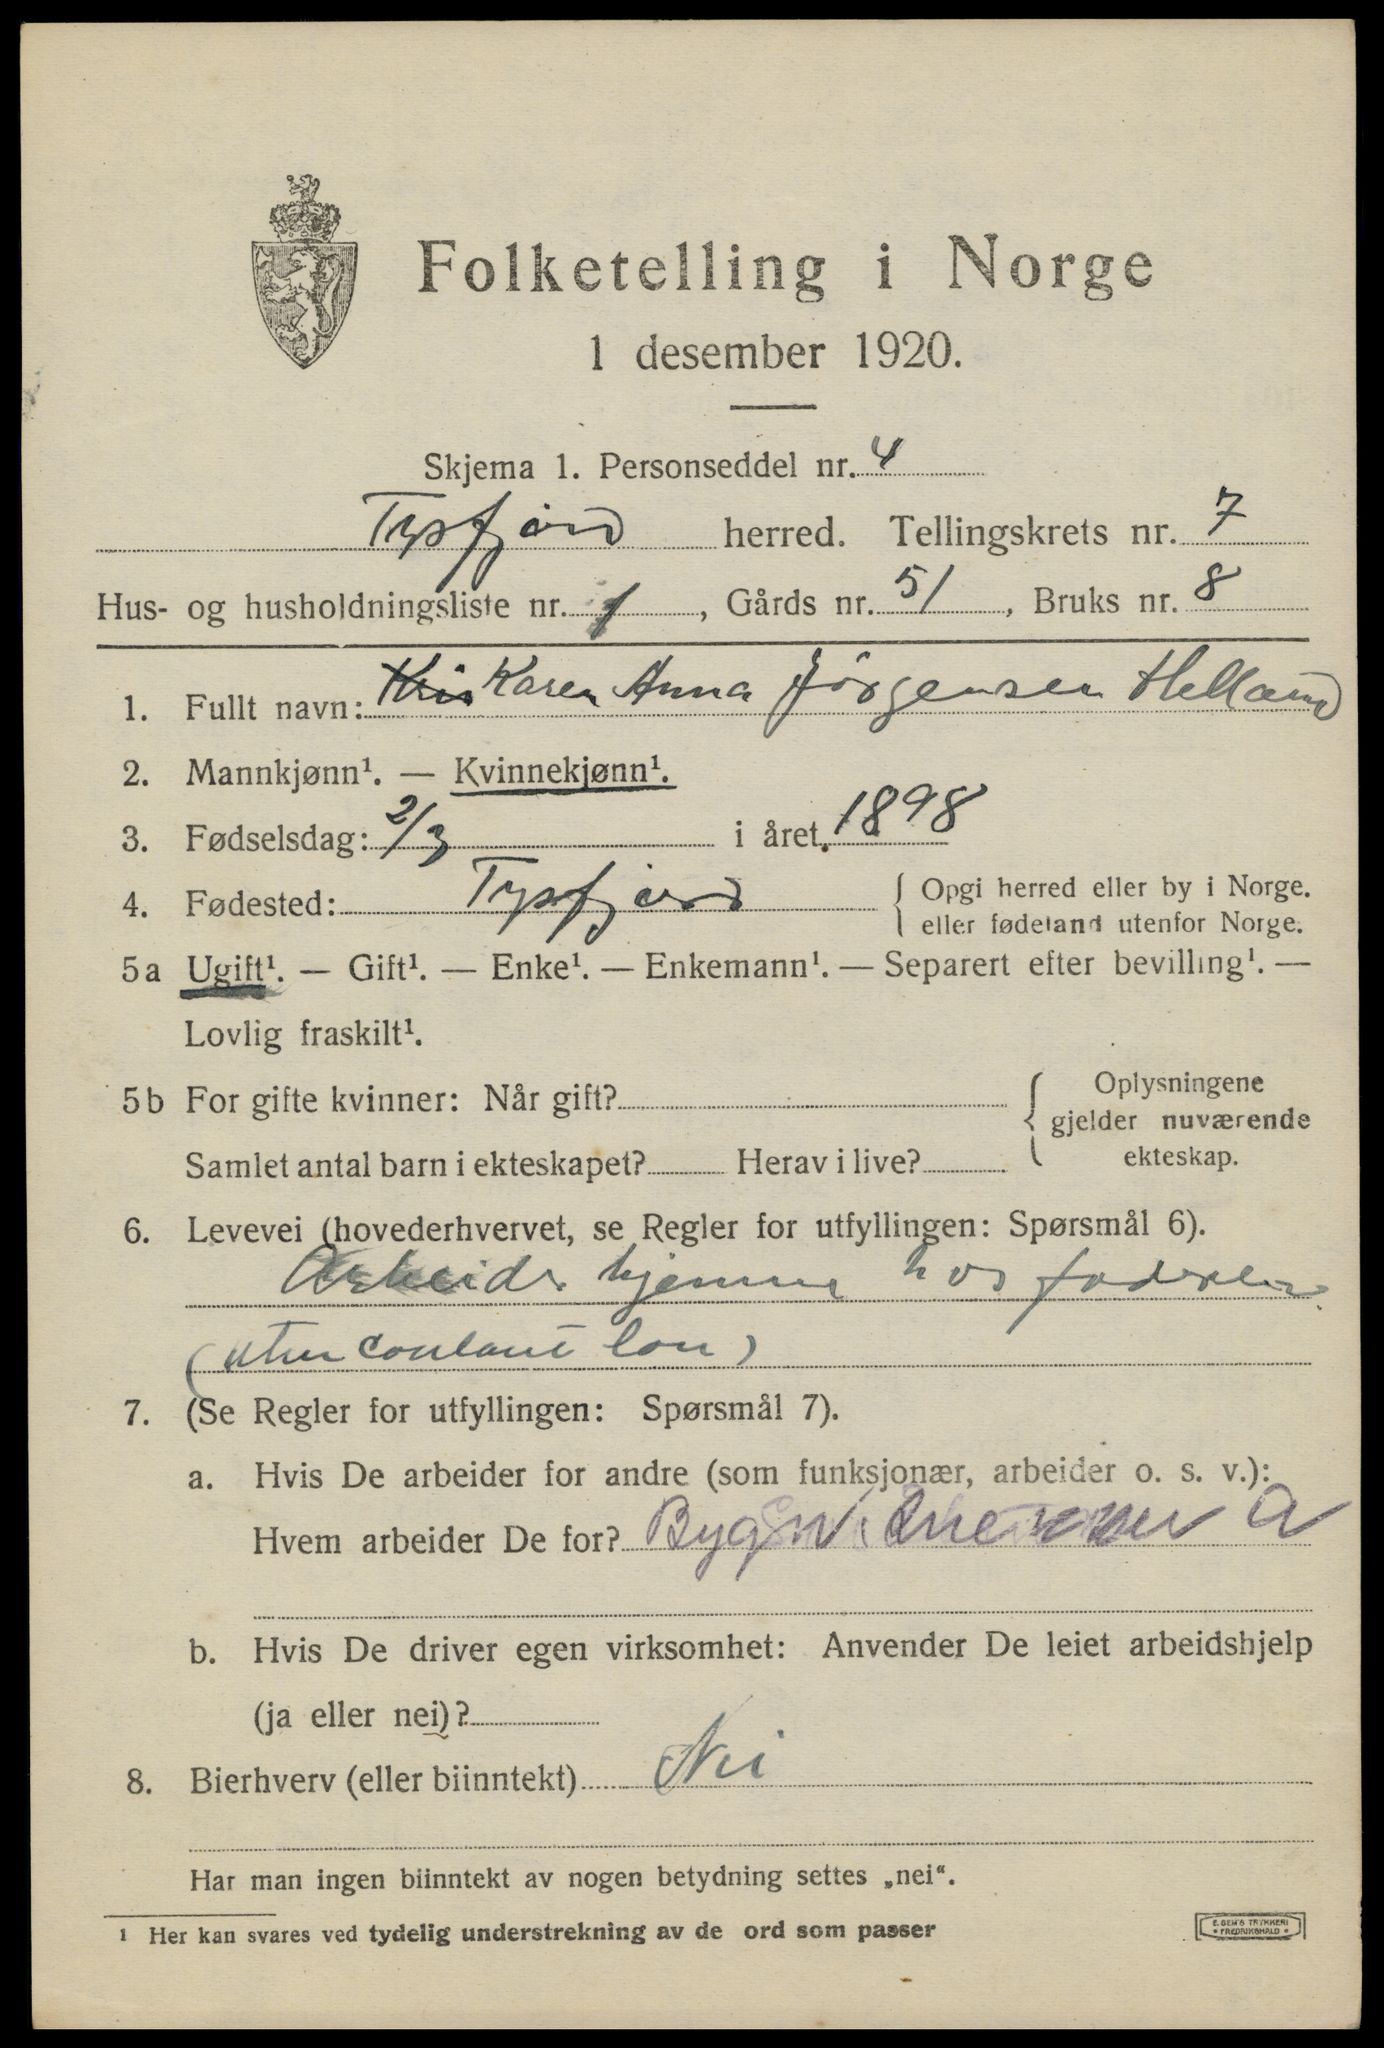 Folketelling i Norge
1 desember 1920.
Skjema 1. Personseddel nr. 4
Tysfjord herred. Tellingskrets nr. 7
Hus- og husholdningsliste nr. 1, Gårds nr. 51, Bruks nr. 8
1. Fullt navn: Karen Anna Jørgensen Helland
2. Mannkjønn¹. — Kvinnekjønn¹.
3. Fødselsdag: 2/3 i året 1898
4. Fødested: Tysfjord { Opgi herred eller by i Norge.
eller fødeland utenfor Norge.
5a Ugift¹. — Gift¹. — Enke¹. — Enkemann¹. — Separert efter bevilling¹. —
Lovlig fraskilt¹.
5b For gifte kvinner: Når gift? { Oplysningene
gjelder nuværende
Samlet antal barn i ekteskapet? Herav i live? ekteskap.
6. Levevei (hovederhvervet, se Regler for utfyllingen: Spørsmål 6).
Arbeider hjemme hos
(uten contant lön)
7. (Se Regler for utfyllingen: Spørsmål 7).
a. Hvis De arbeider for andre (som funksjonær, arbeider o. s. v.):
Hvem arbeider De for?
b. Hvis De driver egen virksomhet: Anvender De leiet arbeidshjelp
(ja eller nei)?
8. Bierhverv (eller biinntekt) Nei
Har man ingen biinntekt av nogen betydning settes „nei“.
¹ Her kan svares ved tydelig understrekning av de ord som passer
E. SEM'S TRYKKERI
* FREDRIKSHALD *